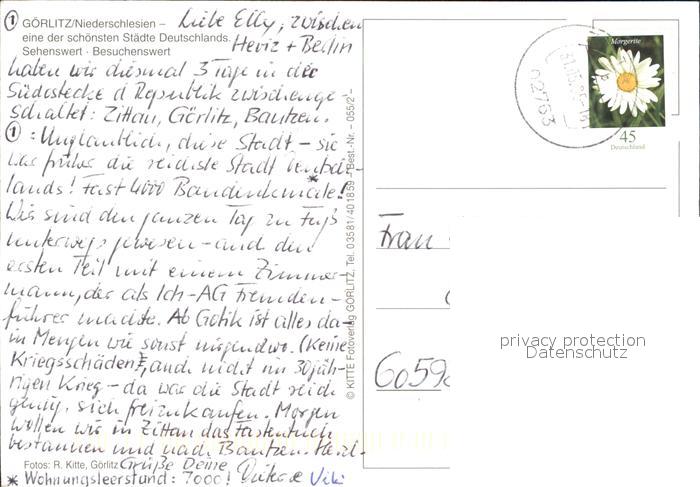 ① GÖRLITZ/Niederschlesien –
eine der schönsten Städte Deutschlands.
Sehenswert · Besuchenswert
Liebe Elly, zwischen
Heviz + Berlin
haben wir diesmal 3 Tage in der
Südostecke d Republik zwischenge-
schaltet: Zittau, Görlitz, Bautzen.
①: Unglaublich, diese Stadt – sie
war früher die reichste Stadt Deutsch-
lands! Fast 4000 Baudenkmale!*
Wir sind den ganzen Tag zu Fuß
unterwegs gewesen – und den
ersten Teil mit einem Zimmer-
mann, der als Ich-AG Fremden-
führer machte. Ab Gotik ist alles da –
in Mengen wie sonst nirgendwo. (Keine
Kriegsschäden, auch nicht im 30jäh-
rigen Krieg – da war die Stadt reich
genug, sich freizukaufen. Morgen
wollen wir in Zittau das Fastentuch
bestaunen und nach Bautzen. Herzl.
Fotos: R. Kitte, Görlitz
Grüße Deine
* Wohnungsleerstand: 7000!
Viki
© KITTE Fotoverlag GÖRLITZ, Tel. 03581/401859 – Best.-Nr. – 055/2 –
02763
Morgerite
45
Deutschland
Frau
6059
privacy protection
Datenschutz